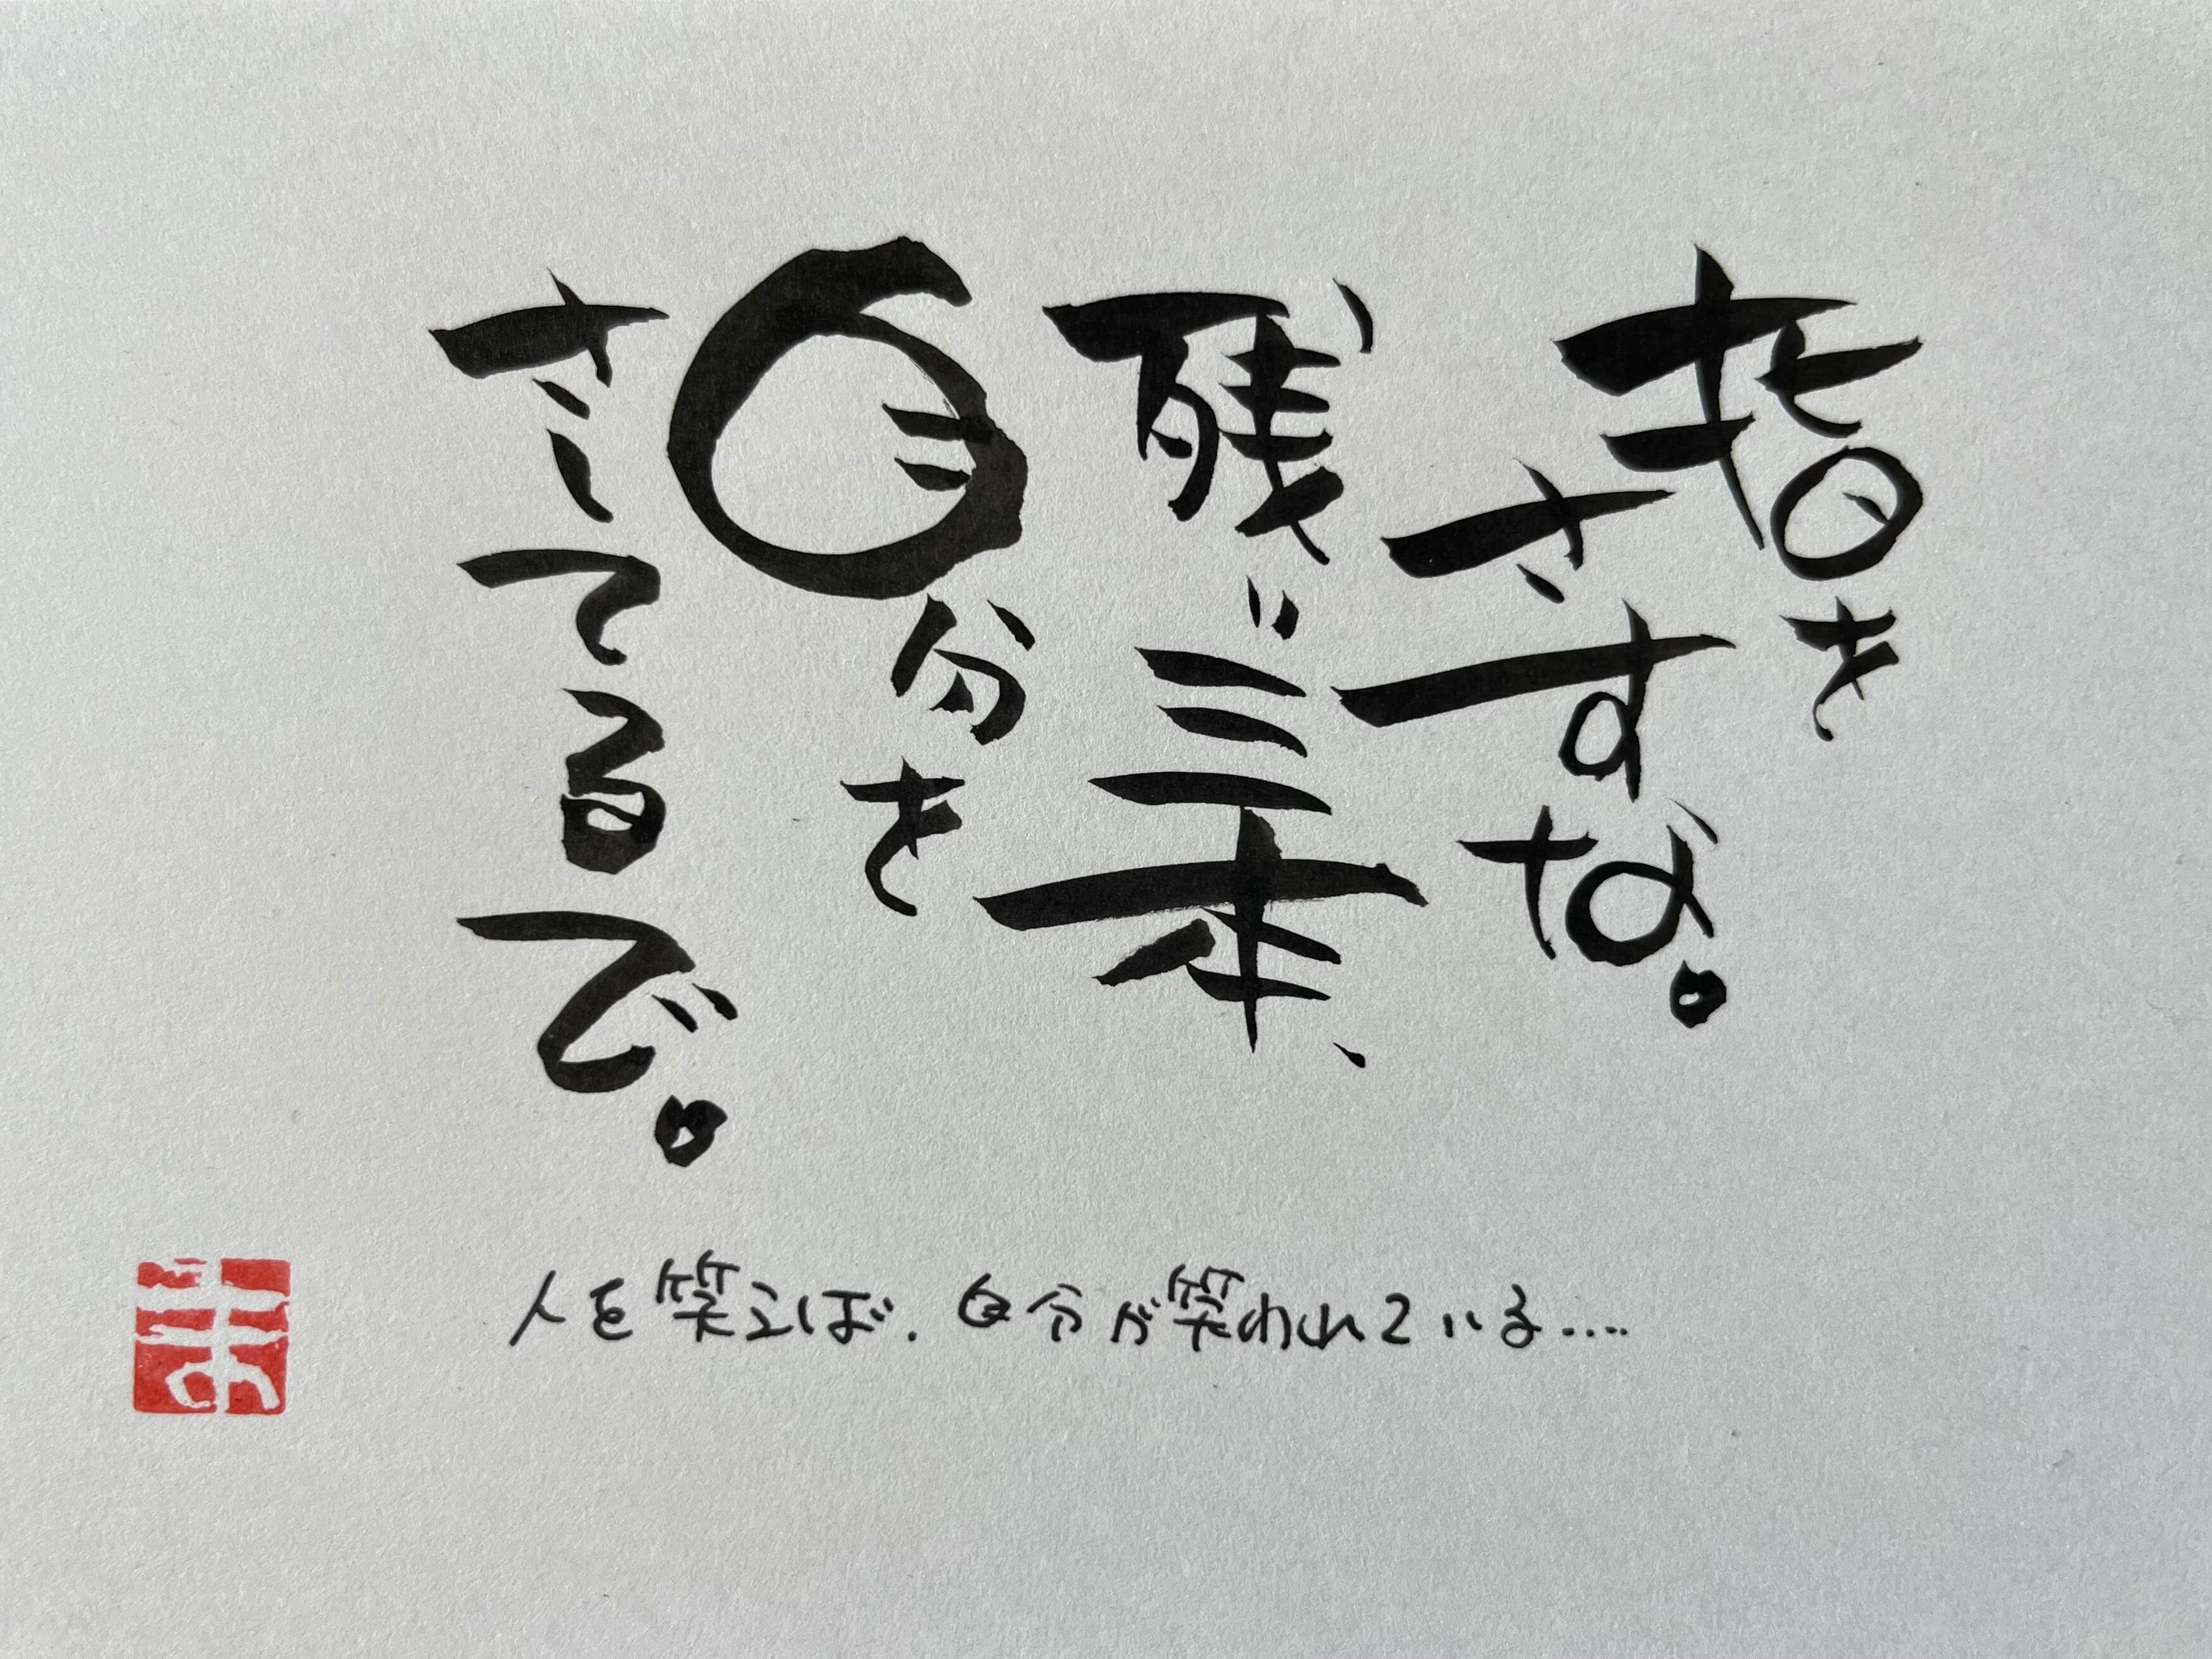 指をさすな。
残り三本、
自分を
さしてるで。
人を笑えば、自分が笑われている....